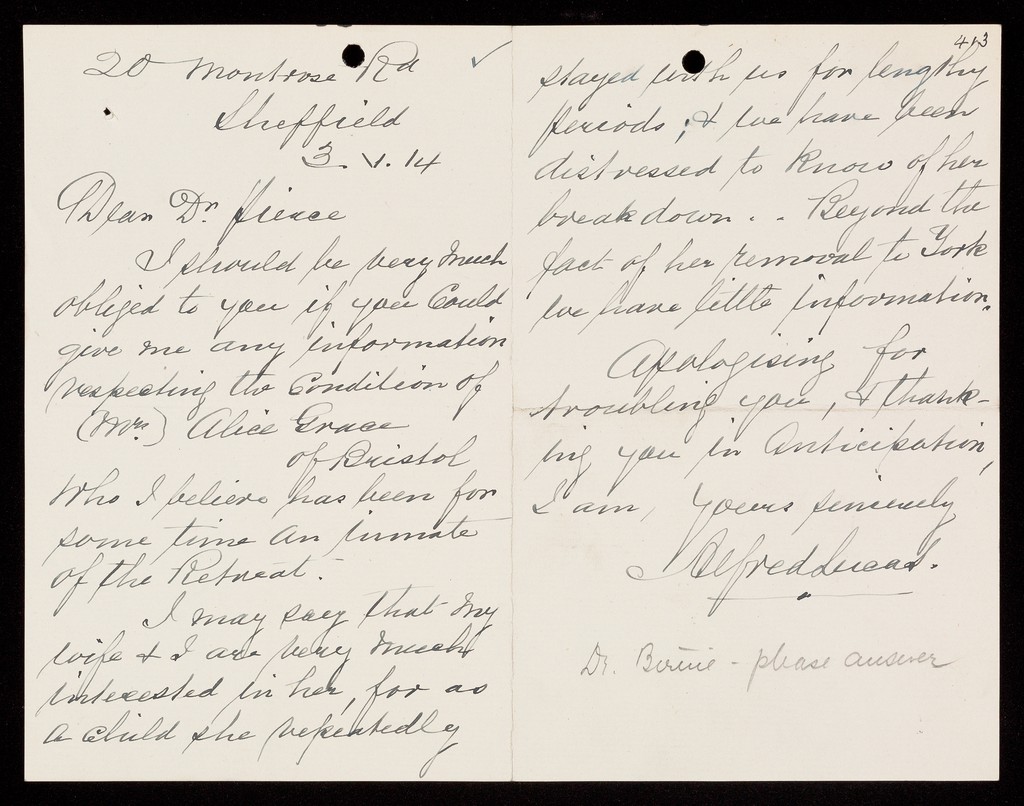 20 Montrose Rd
Sheffield
3. V. 14
Dear Dr. Pierce
I should be very much
obliged to you if you could
give me any information
respecting the condition of
(Mrs.) Alice Grace
of Bristol
who I believe has been for
some time an inmate
of the Retreat.
I may say that my
wife & I are very much
interested in her, for as
a child she repeatedly
413
stayed with us for lengthy
periods; & we have been
distressed to know of her
breakdown. . Beyond the
fact of her removal to York
we have little information.
Apologising for
troubling you, & thank-
ing you in anticipation,
I am, yours sincerely
Alfred Lucas.
Dr. - please answer